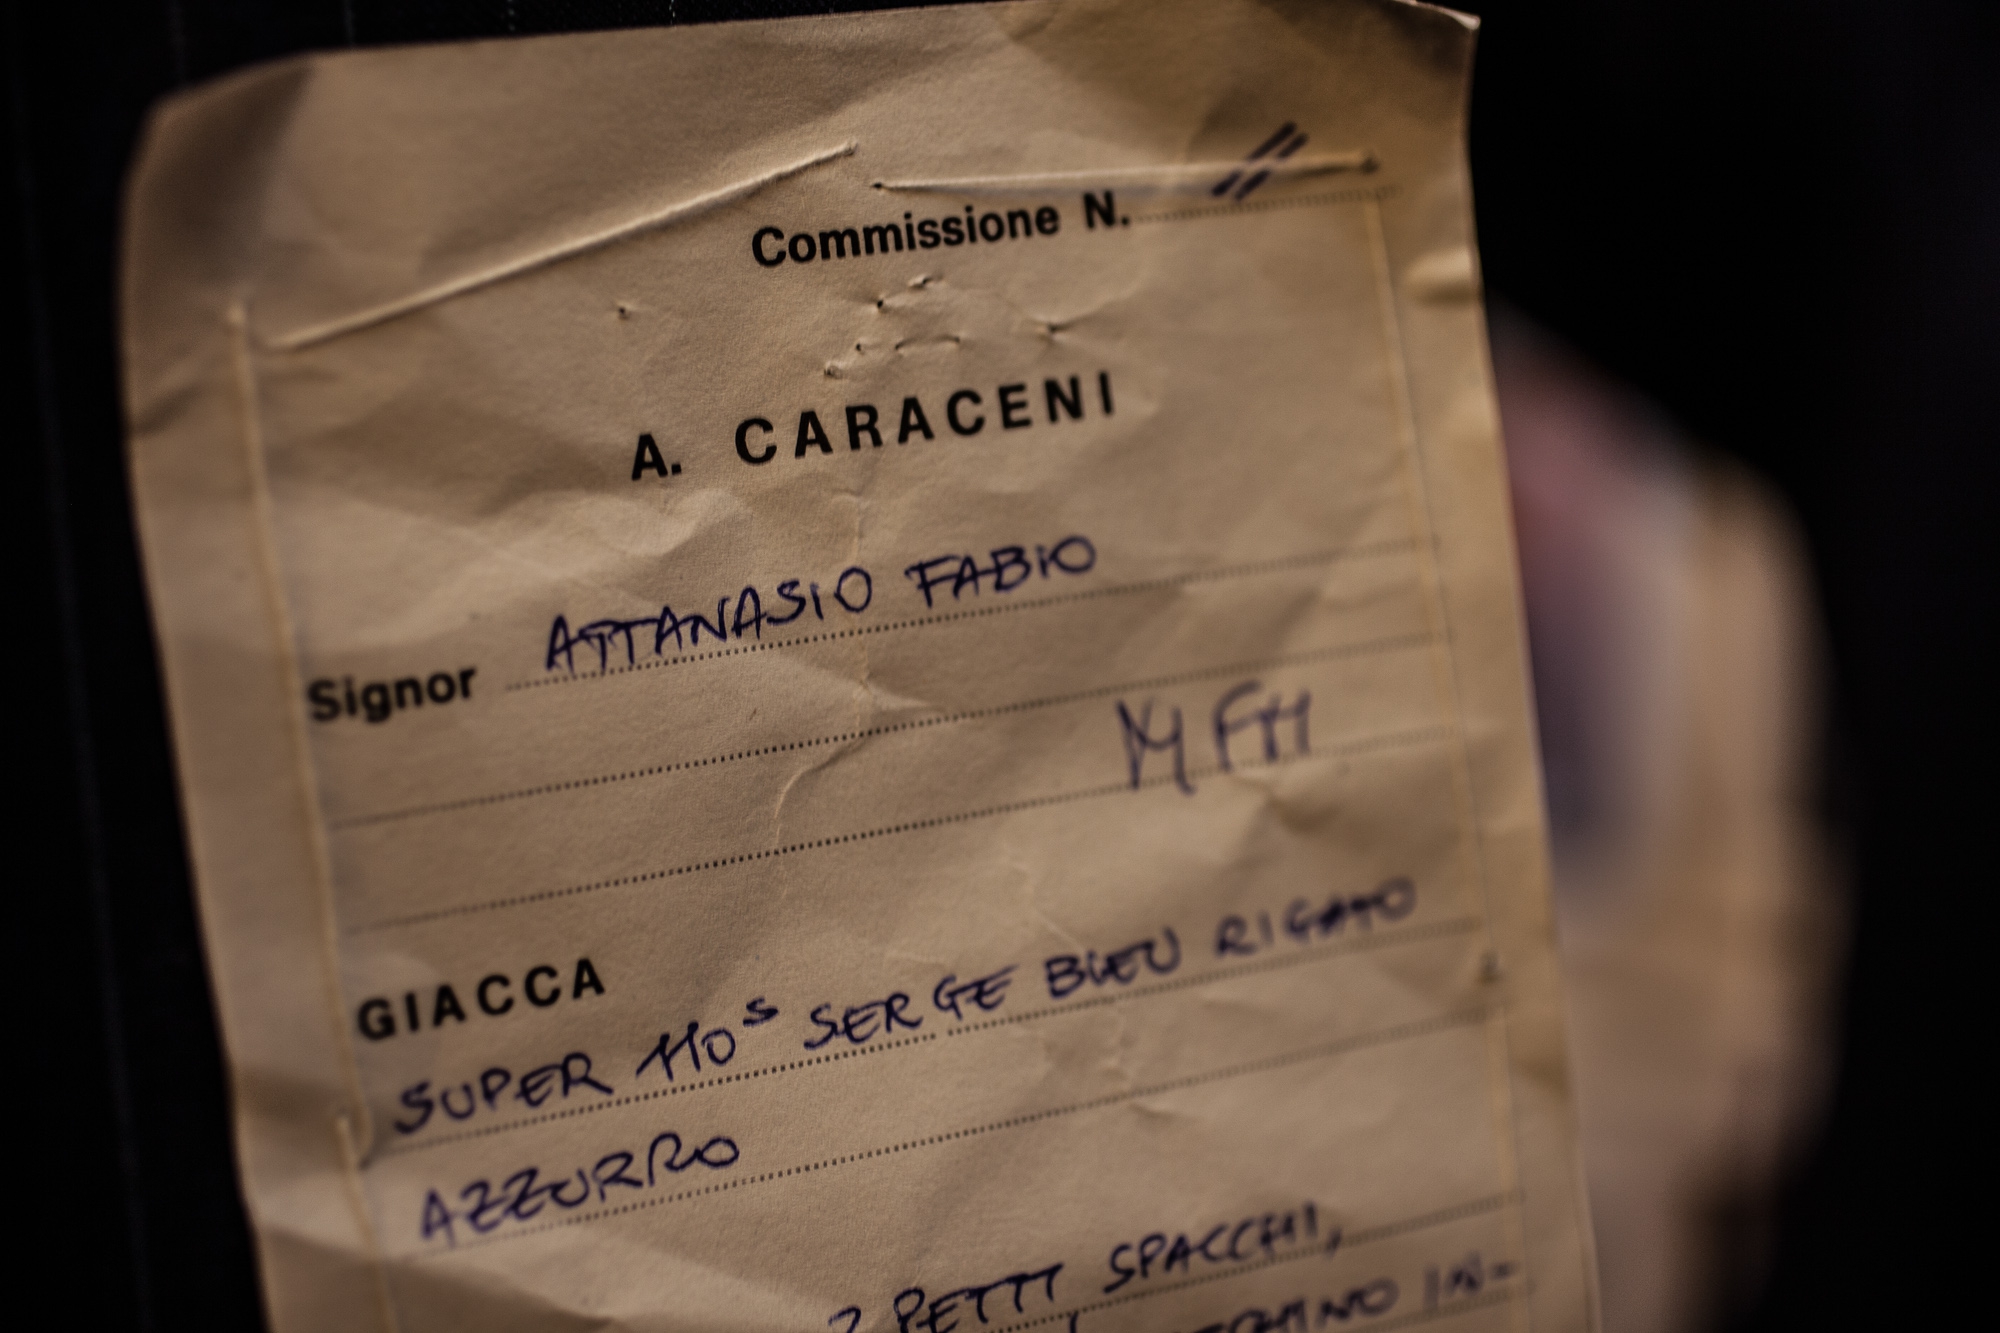 Commissione N. //
A. CARACENI
Signor ATTANASIO FABIO
GIACCA
SUPER 110s SERGE BLEU RIGATO
AZZURRO
2 PETTI SPACCHI,